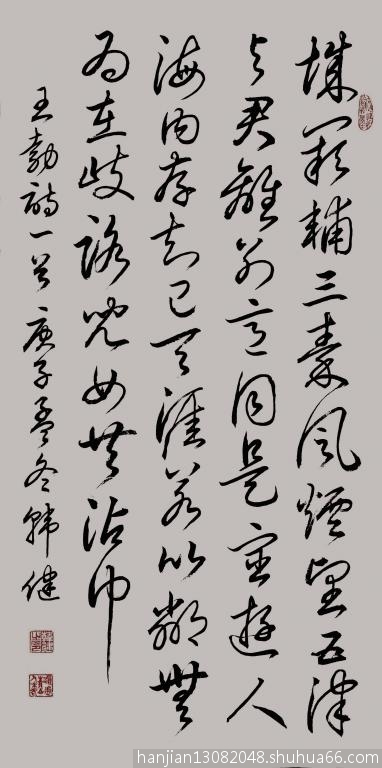 城闕輔三秦風煙望五津
与君離別意同是宦遊人
海内存知己天涯若比鄰無
為在歧路兒女共沾巾
王勃詩一首 庚子孟冬韓健
hanjian13082048.shuhua66.com